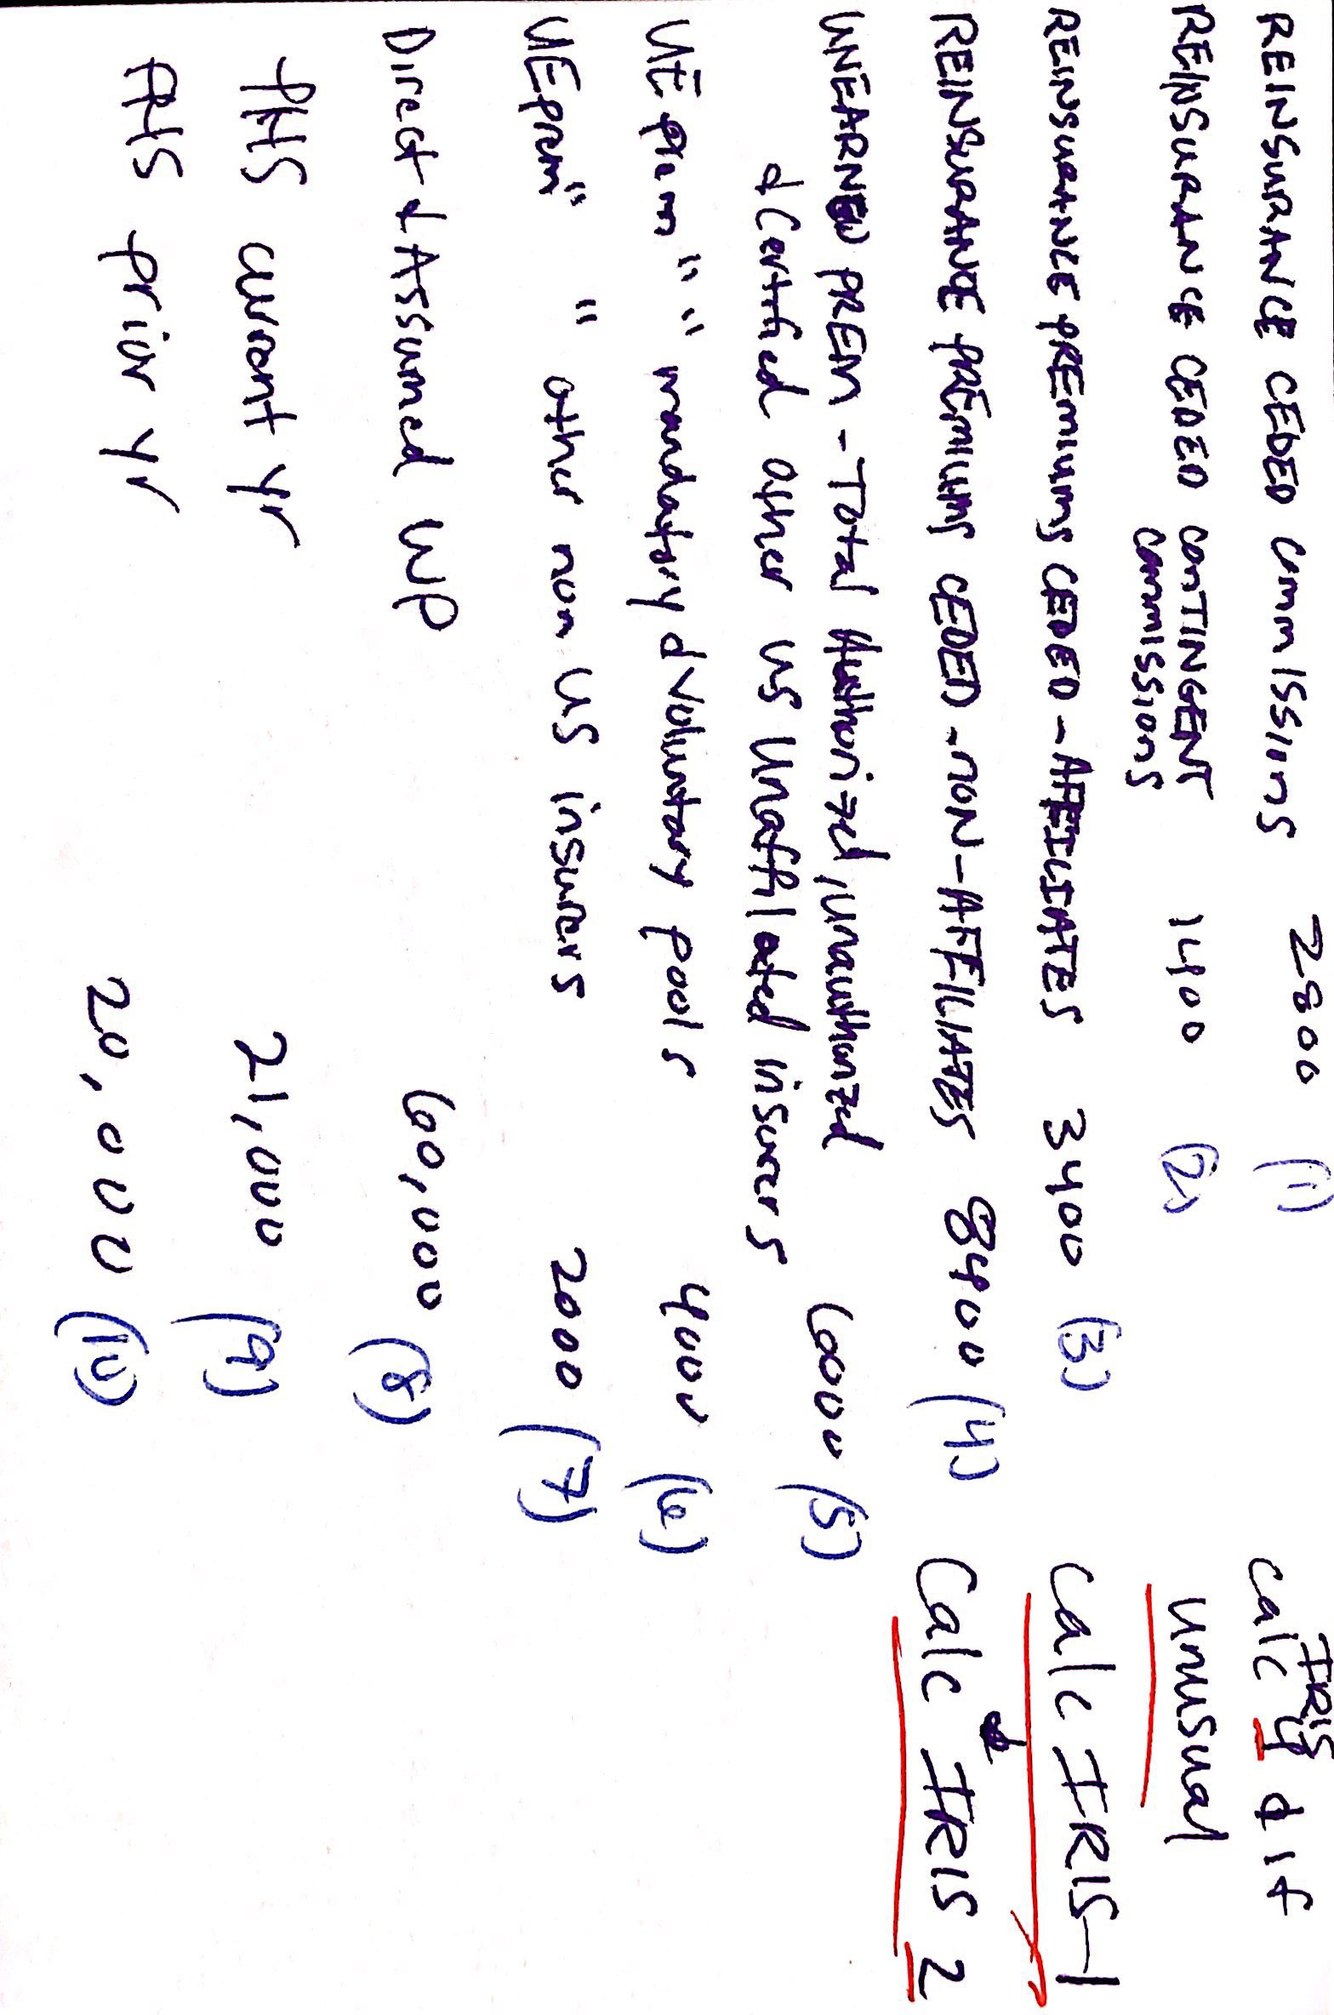 REINSURANCE CEDED commissions 2800 (1)
REINSURANCE CEDED CONTINGENT 1400 (2)
commissions
REINSURANCE PREmiums CEDED - AFFILIATES 3400 (3)
REINSURANCE PREmiums CEDED - NON-AFFILIATES 8400 (4)
UNEARNED PREM - Total Authorized, unauthorized
& Certified other US Unaffiliated insurers 6000 (5)
UE prem " " mandatory & voluntary pools 4000 (6)
UE prem " " other non US insurers 2000 (7)
Direct & Assumed WP 60,000 (8)
PHS current yr 21,000 (9)
PHS prior yr 20,000 (10)
IRIS
Calc 4 & if
unusual
Calc IRIS-1
&
Calc IRIS 2